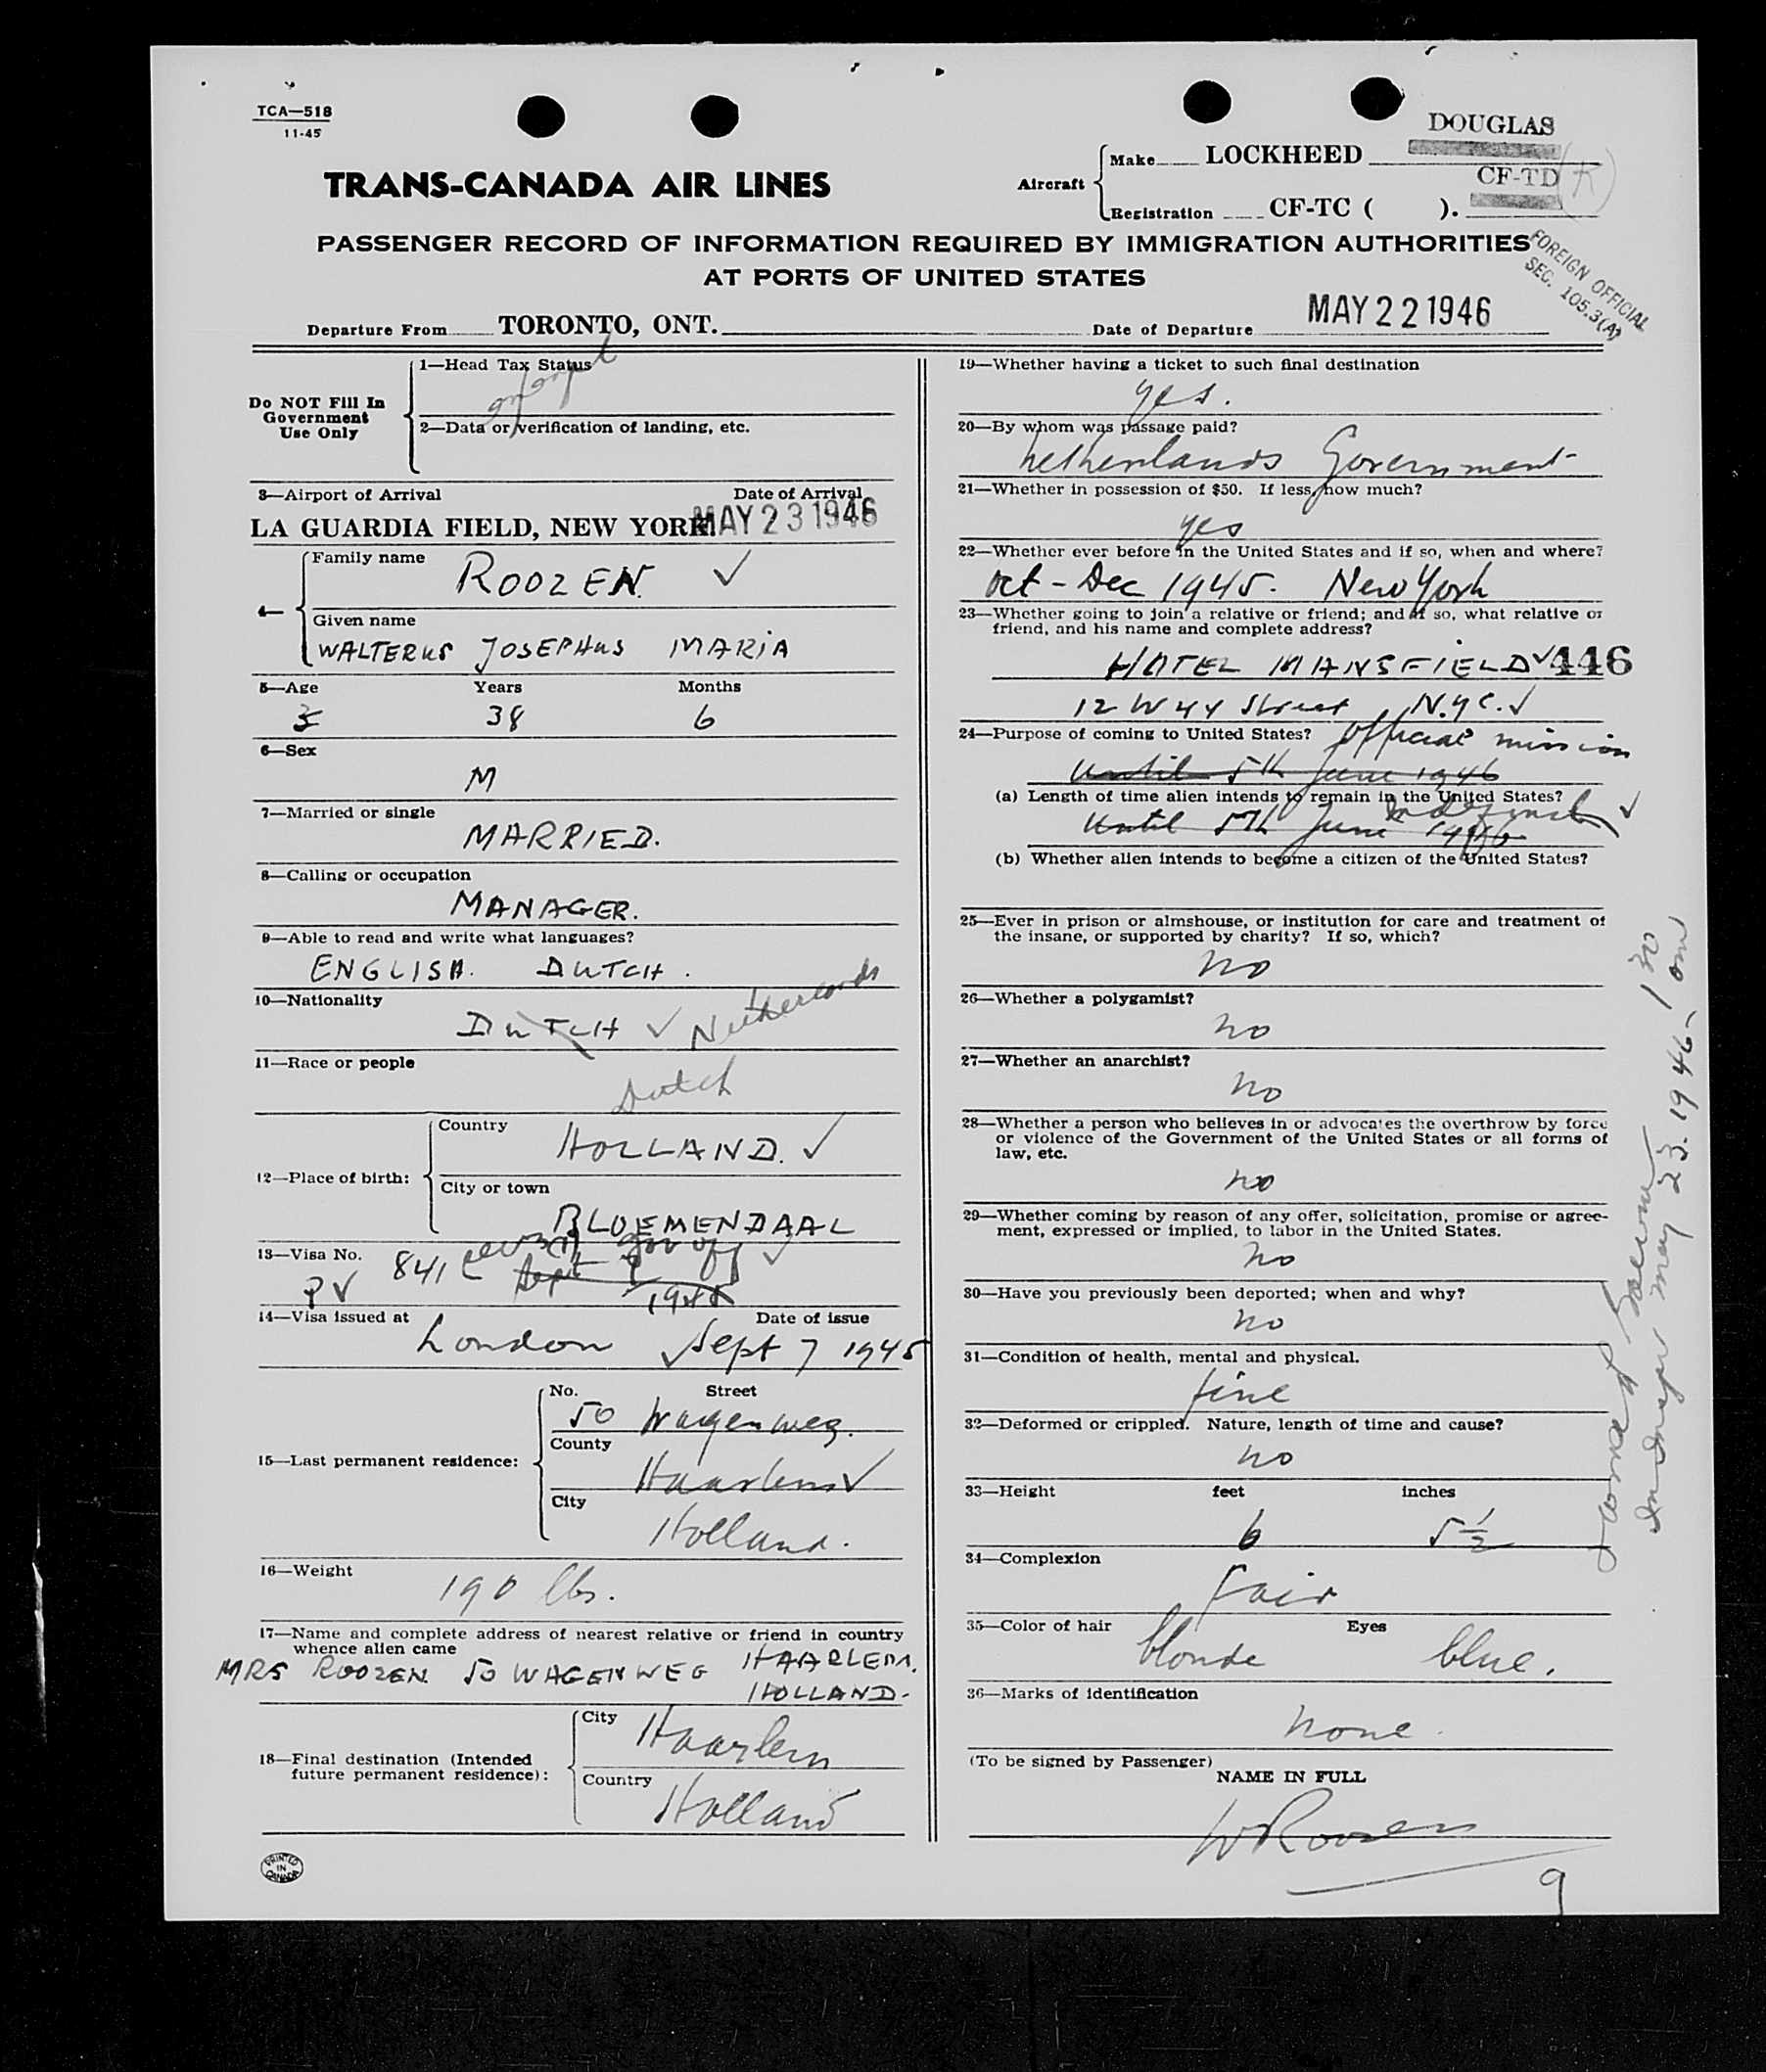 TCA—518
11-45
TRANS-CANADA AIR LINES
DOUGLAS
Aircraft
Make LOCKHEED
CF-TD (K)
Registration CF-TC ( ).
PASSENGER RECORD OF INFORMATION REQUIRED BY IMMIGRATION AUTHORITIES
AT PORTS OF UNITED STATES
FOREIGN OFFICIAL
SEC. 105.3(A)
Departure From TORONTO, ONT.
Date of Departure MAY 22 1946
Do NOT Fill In
Government
Use Only
1—Head Tax Status
2—Data or verification of landing, etc.
3—Airport of Arrival Date of Arrival
LA GUARDIA FIELD, NEW YORK. MAY 23 1946
4—
Family name
ROOZEN. ✓
Given name
WALTERUS JOSEPHUS MARIA
5—Age Years Months
38 6
6—Sex
M
7—Married or single
MARRIED.
8—Calling or occupation
MANAGER.
9—Able to read and write what languages?
ENGLISH. DUTCH.
10—Nationality
DUTCH ✓ Netherlands
11—Race or people
Dutch
12—Place of birth:
Country
HOLLAND. ✓
City or town
BLOEMENDAAL
13—Visa No. 841 gov off ✓
PV Sept 1945
14—Visa issued at Date of issue
London ✓ Sept 7 1945
15—Last permanent residence:
No. Street
50 Wagenweg.
County
Haarlem ✓
City
Holland.
16—Weight
190 lbs.
17—Name and complete address of nearest relative or friend in country
whence alien came
MRS ROOZEN 50 WAGENWEG HAARLEM.
HOLLAND.
18—Final destination (Intended
future permanent residence):
City
Haarlem
Country
Holland
PRINTED
IN
CANADA
19—Whether having a ticket to such final destination
yes.
20—By whom was passage paid?
Netherlands Government
21—Whether in possession of $50. If less, how much?
yes
22—Whether ever before in the United States and if so, when and where?
Oct - Dec 1945. New York
23—Whether going to join a relative or friend; and if so, what relative or
friend, and his name and complete address?
HOTEL MANSFIELD ✓ 446
12 W 44 Street N.Y.C. ✓
24—Purpose of coming to United States? Official mission
Until 5th June 1946
(a) Length of time alien intends to remain in the United States?
Until 5th June 1946 ✓
(b) Whether alien intends to become a citizen of the United States?
25—Ever in prison or almshouse, or institution for care and treatment of
the insane, or supported by charity? If so, which?
no
26—Whether a polygamist?
no
27—Whether an anarchist?
no
28—Whether a person who believes in or advocates the overthrow by force
or violence of the Government of the United States or all forms of
law, etc.
no
29—Whether coming by reason of any offer, solicitation, promise or agree-
ment, expressed or implied, to labor in the United States.
no
30—Have you previously been deported; when and why?
no
31—Condition of health, mental and physical.
fine
32—Deformed or crippled. Nature, length of time and cause?
no
33—Height feet inches
6 5 1/2
34—Complexion
fair
35—Color of hair Eyes
blonde blue.
36—Marks of identification
none.
(To be signed by Passenger)
NAME IN FULL
W Roozen
9
May 23. 1946